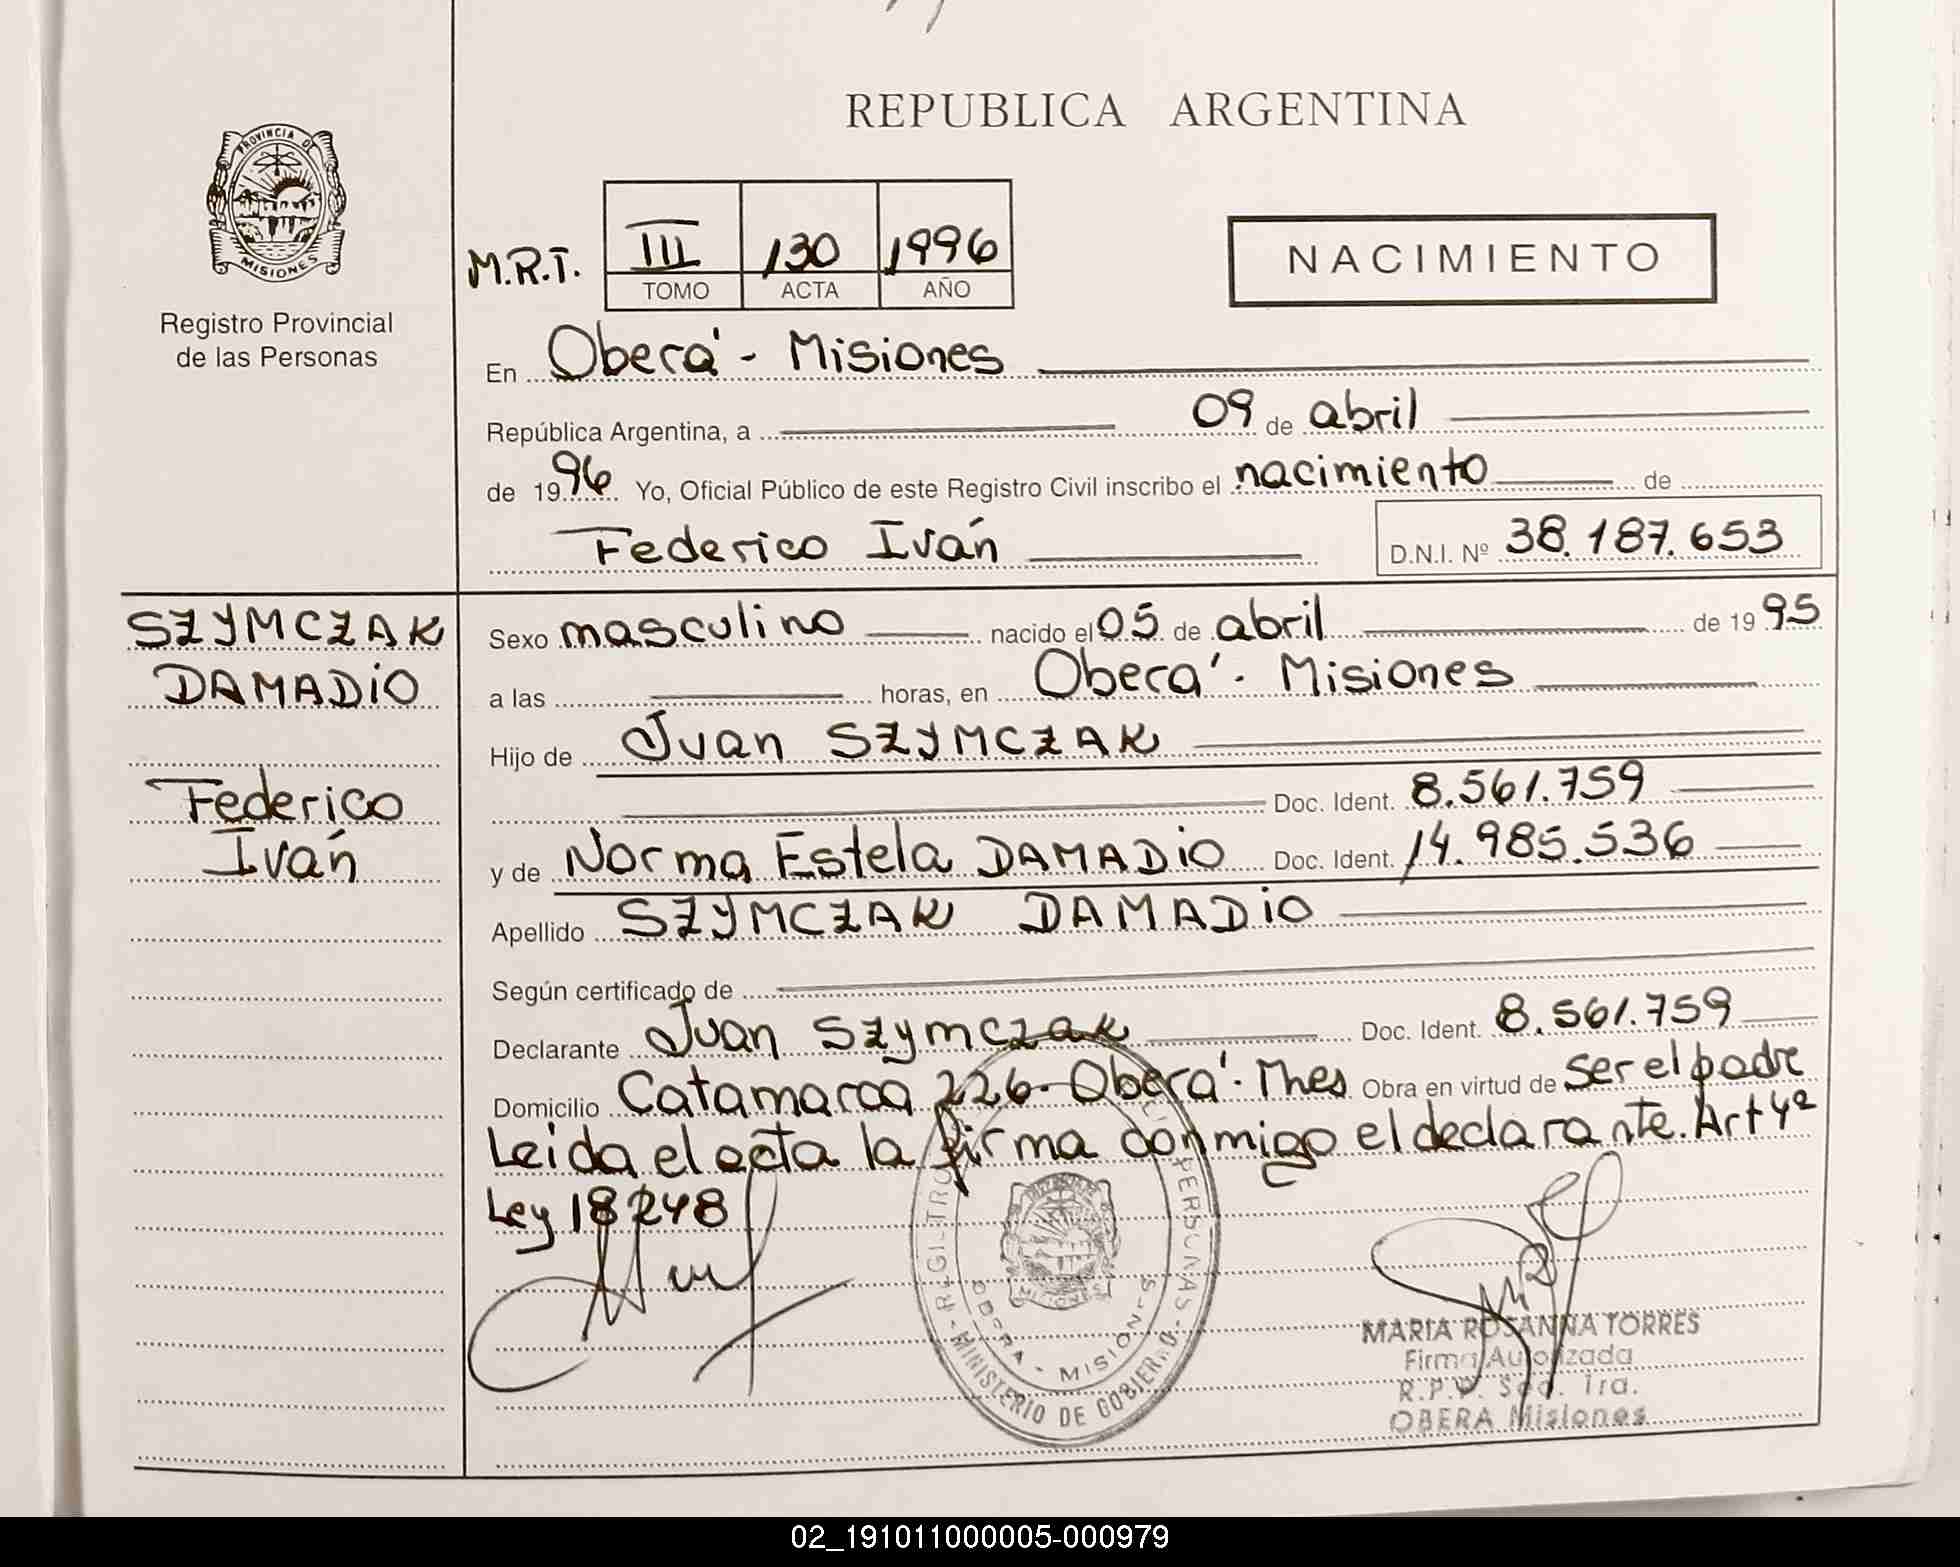 REPUBLICA ARGENTINA
PROVINCIA DE
MISIONES
Registro Provincial
de las Personas
M.R.T.
III 130 1996
TOMO ACTA AÑO
NACIMIENTO
En Oberá - Misiones
República Argentina, a 09 de abril
de 1996 Yo, Oficial Público de este Registro Civil inscribo el nacimiento de
Federico Iván D.N.I. Nº 38.187.653
SZYMCZAK
DAMADIO
Federico
Iván
Sexo masculino nacido el 05 de abril de 1995
a las horas, en Oberá - Misiones
Hijo de Juan SZYMCZAK
Doc. Ident. 8.561.759
y de Norma Estela DAMADIO Doc. Ident. 14.985.536
Apellido SZYMCZAK DAMADIO
Según certificado de
Declarante Juan Szymczak Doc. Ident. 8.561.759
Domicilio Catamarca 226 - Oberá - Mnes Obra en virtud de ser el padre
Leida el acta la firma conmigo el declarante. Art 4º
Ley 18248
PERSONAS - MINISTERIO DE GOBIERNO -
OBERA - MISIONES
MISIONES
MARIA ROSANNA TORRES
Firma Autorizada
R.P.P. Sec. 1ra.
OBERA Misiones
02_191011000005-000979